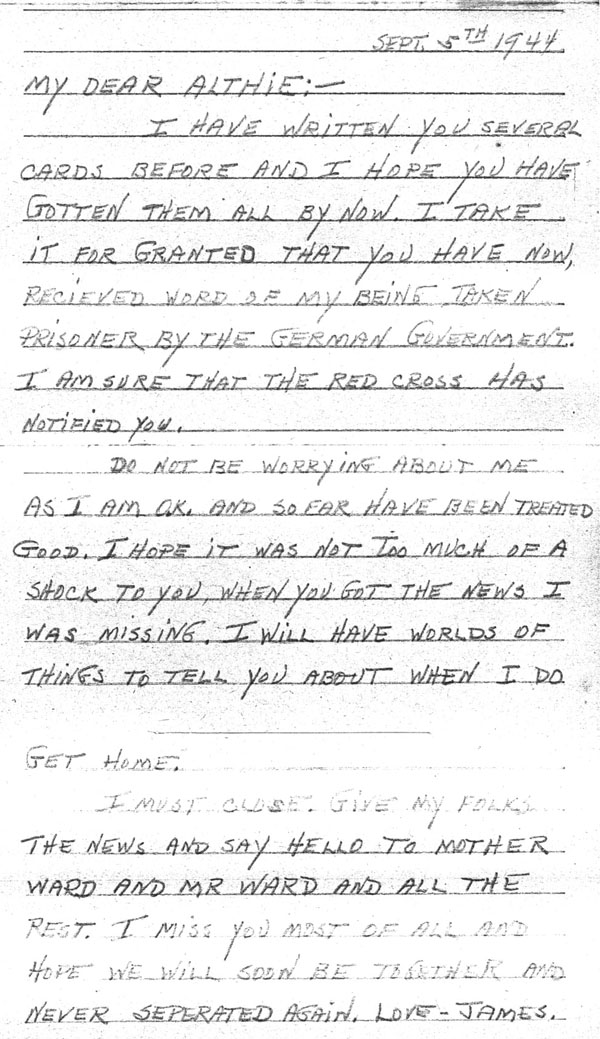 SEPT. 5TH 1944
MY DEAR ALTHIE:—
I HAVE WRITTEN YOU SEVERAL
CARDS BEFORE AND I HOPE YOU HAVE
GOTTEN THEM ALL BY NOW. I TAKE
IT FOR GRANTED THAT YOU HAVE NOW,
RECIEVED WORD OF MY BEING TAKEN
PRISONER BY THE GERMAN GOVERNMENT.
I AM SURE THAT THE RED CROSS HAS
NOTIFIED YOU.
DO NOT BE WORRYING ABOUT ME
AS I AM O.K. AND SO FAR HAVE BEEN TREATED
GOOD. I HOPE IT WAS NOT TOO MUCH OF A
SHOCK TO YOU, WHEN YOU GOT THE NEWS I
WAS MISSING. I WILL HAVE WORLDS OF
THINGS TO TELL YOU ABOUT WHEN I DO
GET HOME.
I MUST CLOSE. GIVE MY FOLKS
THE NEWS AND SAY HELLO TO MOTHER
WARD AND MR WARD AND ALL THE
REST. I MISS YOU MOST OF ALL AND
HOPE WE WILL SOON BE TOGETHER AND
NEVER SEPERATED AGAIN. LOVE - JAMES.